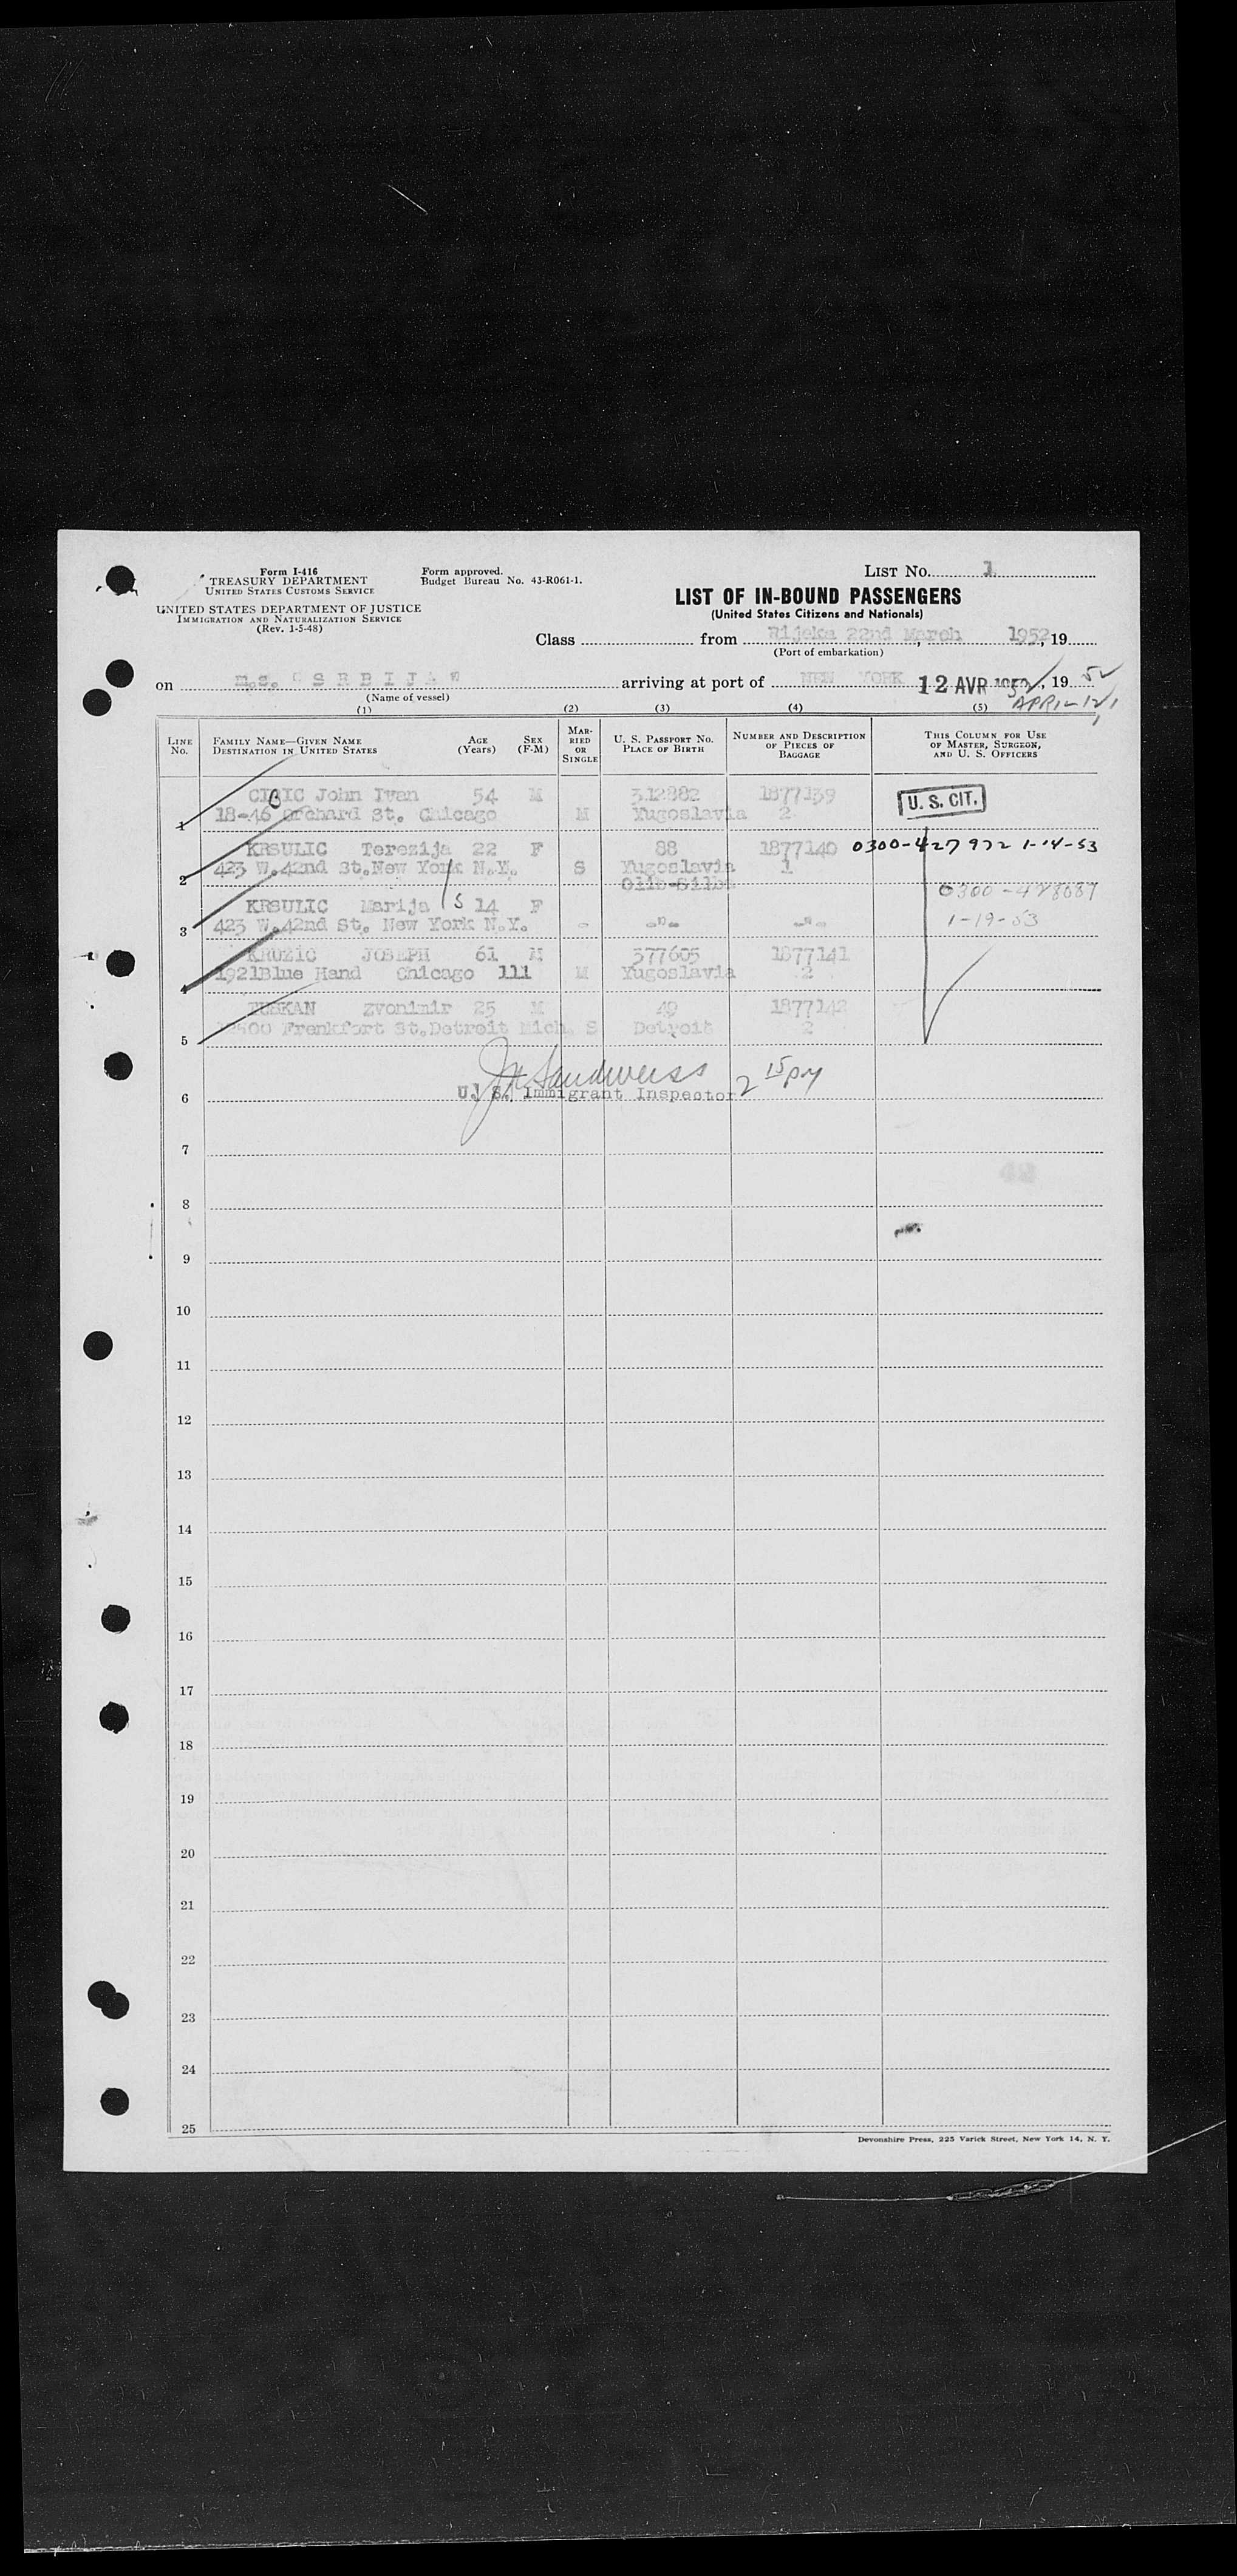 Form I-416
TREASURY DEPARTMENT
UNITED STATES CUSTOMS SERVICE
UNITED STATES DEPARTMENT OF JUSTICE
IMMIGRATION AND NATURALIZATION SERVICE
(Rev. 1-5-48)
Form approved.
Budget Bureau No. 43-R061-1.
LIST NO. 1
LIST OF IN-BOUND PASSENGERS
(United States Citizens and Nationals)
Class from Rijeka 22nd March 1952, 19
(Port of embarkation)
on m.s. "SRBIJA" arriving at port of NEW YORK 12 AVR 1952, 19 52
APRIL 12
(Name of vessel)
(1) (2) (3) (4) (5)
LINE No. FAMILY NAME—GIVEN NAME DESTINATION IN UNITED STATES AGE (Years) SEX (F-M) MARRIED OR SINGLE U. S. PASSPORT NO. PLACE OF BIRTH NUMBER AND DESCRIPTION OF PIECES OF BAGGAGE THIS COLUMN FOR USE OF MASTER, SURGEON, AND U. S. OFFICERS
CIBIC John Ivan 54 M 312882 1877139 U. S. CIT.
1 18-46 Orchard St. Chicago M Yugoslavia 2
KRSULIC Terezija 22 F 88 1877140 0300-427 972 1-14-53
2 423 W.42nd St.New York N.Y. S Yugoslavia 1
Olib-Silba 0300-428687
KRSULIC Marija S 14 F 1-19-53
3 423 W.42nd St. New York N.Y. - -"- -"-
KRUZIC JOSEPH 61 M 377605 1877141
4 1921Blue Hand Chicago 111 M Yugoslavia 2
TUSKAN Zvonimir 25 M 49 1877142
5 Frenkfort St.Detroit Mich. S Detroit 2
J Sandweiss 2 15 pm
6 U. S. Immigrant Inspector
7
8
9
10
11
12
13
14
15
16
17
18
19
20
21
22
23
24
25
Devonshire Press, 225 Varick Street, New York 14, N. Y.